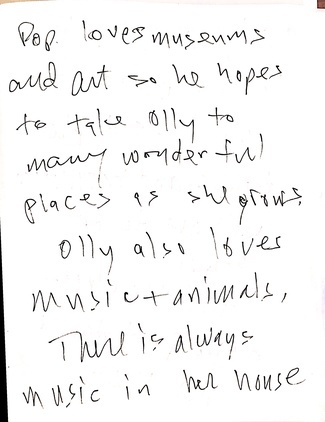 Pop loves museums
and art so he hopes
to take Olly to
many wonderful
places as she grows.
Olly also loves
music + animals,
There is always
music in her house